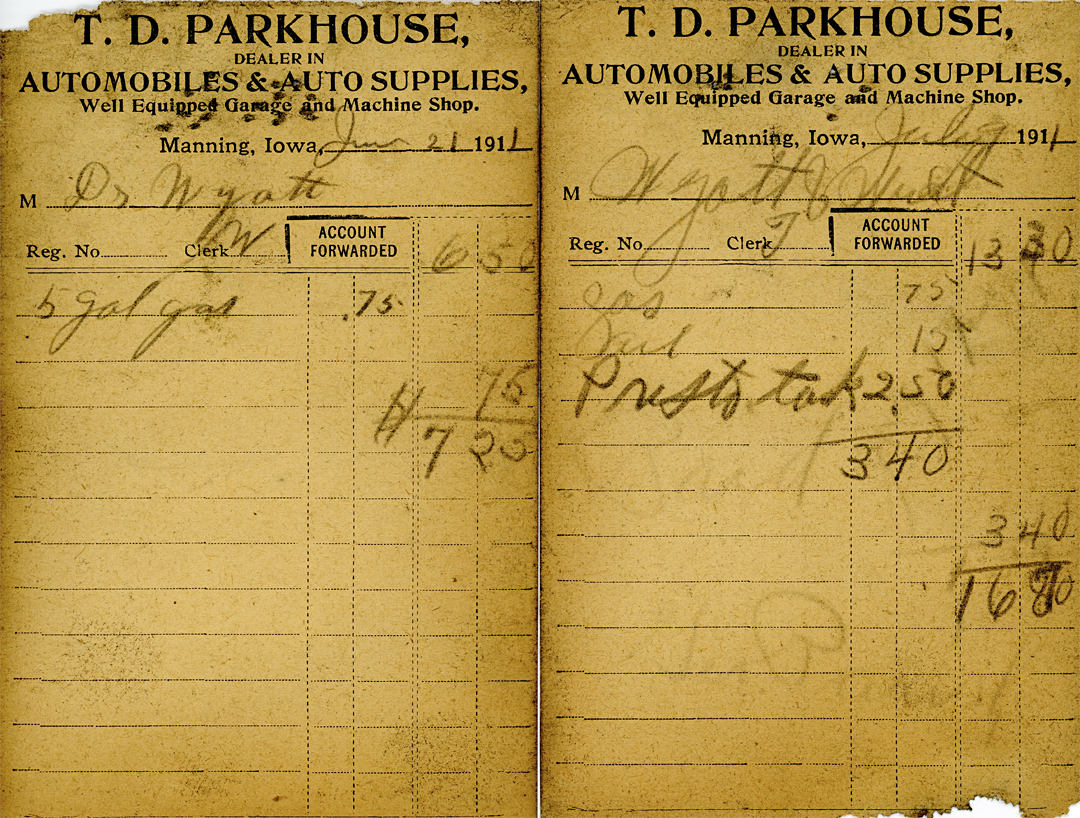 T. D. PARKHOUSE,
DEALER IN
AUTOMOBILES & AUTO SUPPLIES,
Well Equipped Garage and Machine Shop.
Manning, Iowa, Jun 21 1911
M Dr Wyatt
Reg. No. Clerk W ACCOUNT FORWARDED 6 50
5 gal gas .75
75
7 25
T. D. PARKHOUSE,
DEALER IN
AUTOMOBILES & AUTO SUPPLIES,
Well Equipped Garage and Machine Shop.
Manning, Iowa, July 1911
M Wyatt &
Reg. No. Clerk ACCOUNT FORWARDED 13
gas 75
15
Presto tank 2.50
3 40
3 40
16